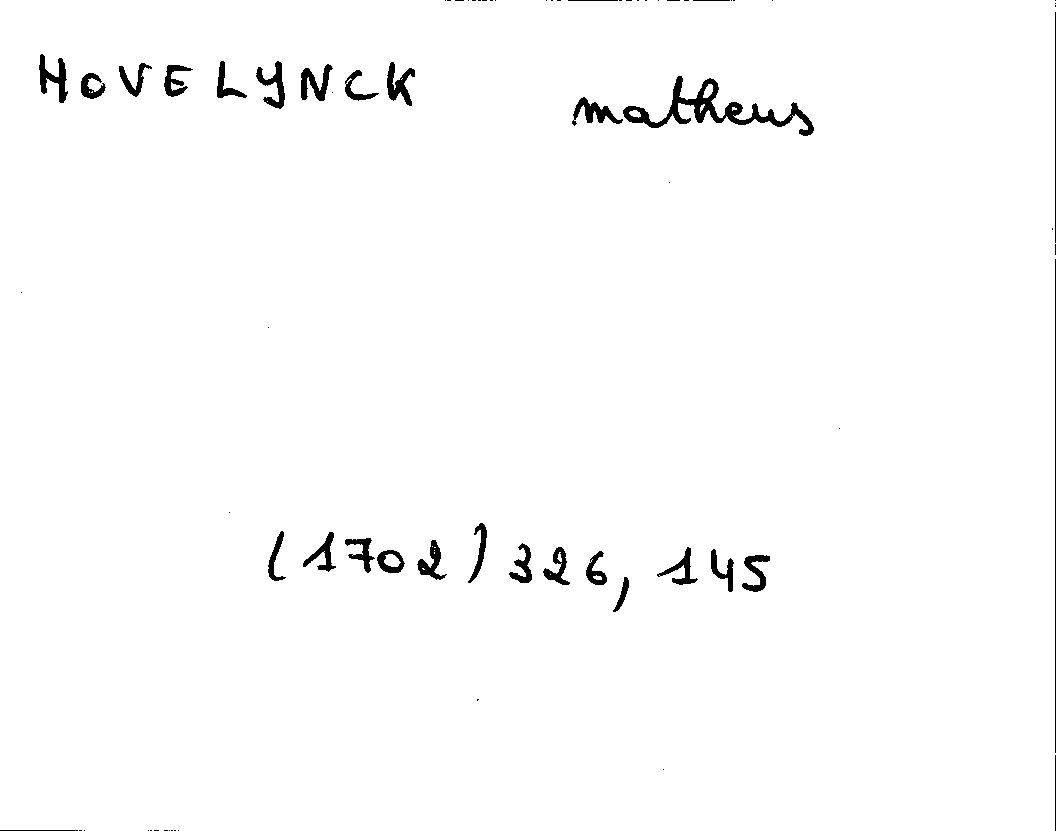 HOVELYNCK matheus
(1702) 326, 145